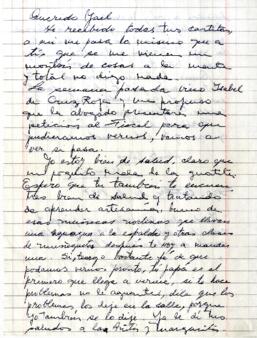 Querido Yael
He recibido todas tus cartitas,
a mí me pasa lo mismo que a
tí que se me vienen un
montón de cosas a la mente
y total no digo nada.
La semana pasada vino Isabel
de Cruz Roja y me propuso
que la abogado presentara una
petición al Fiscal para que
pudieramos vernos, vamos a
ver si pasa.
Yo estoy bien de salud, claro que
un poquito
Espero que tu también te encuen
tres bien de salud y tratando
de aprender artesanía, bueno
esas muñecas nortinas que llevan
una guagua a la espalda y otras clases
de muñequitos después te voy a mandar
una. Si, tengo bastante fé de que
podamos vernos pronto, tu papá es el
primero que llega a verme, si te hace
problemas no le aguantes, dile que los
problemas los deje en la calle, porque
yo también se lo dije. Ya le di tus
saludos a las y Margarita